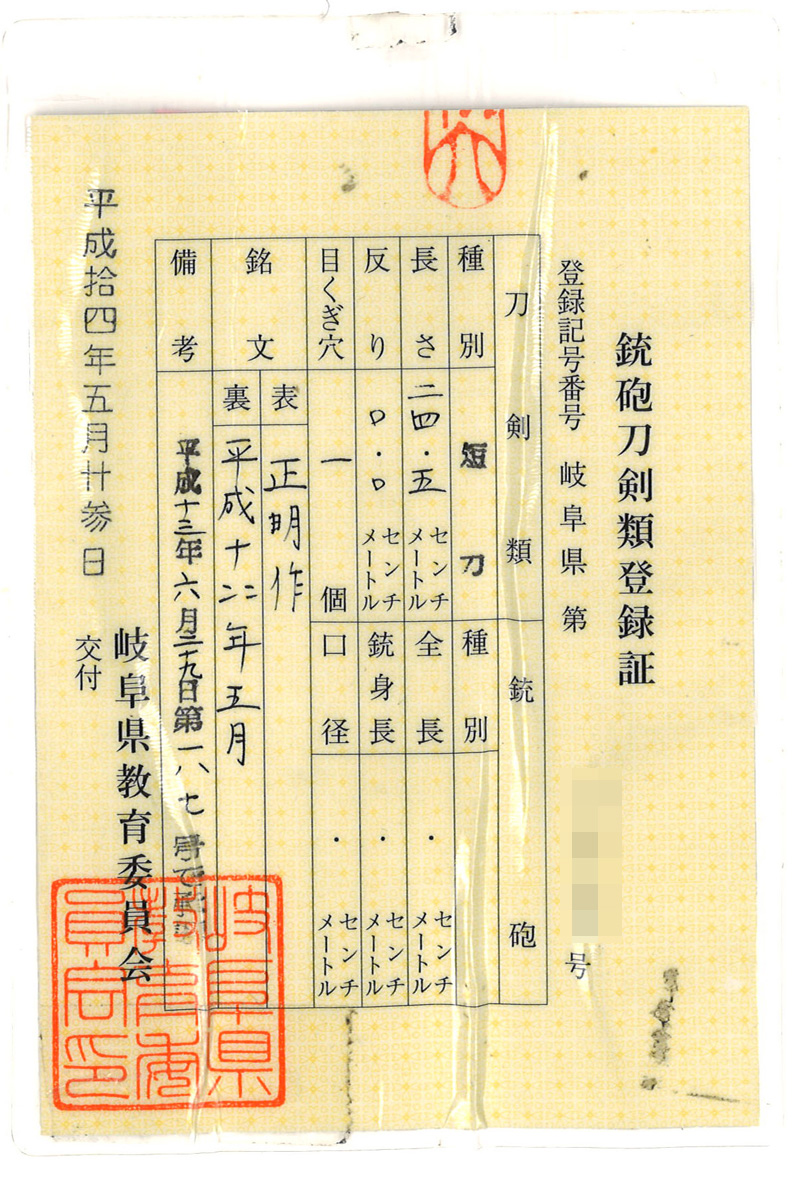 銃砲刀剣類登録証
登録記号番号 岐阜県 第 号
刀剣類
種別 短刀
長さ 二四・五 センチメートル
反り 〇・〇 センチメートル
目くぎ穴 一 個
銘文
表 正明作
裏 平成十二年五月
備考 平成十三年六月二十九日第一八七号で承認
銃砲
種別
全長 ・ センチメートル
銃身長 ・ センチメートル
口径 ・ センチメートル
平成拾四年五月廿参日
交付
岐阜県教育委員会
岐阜県教育委員会印